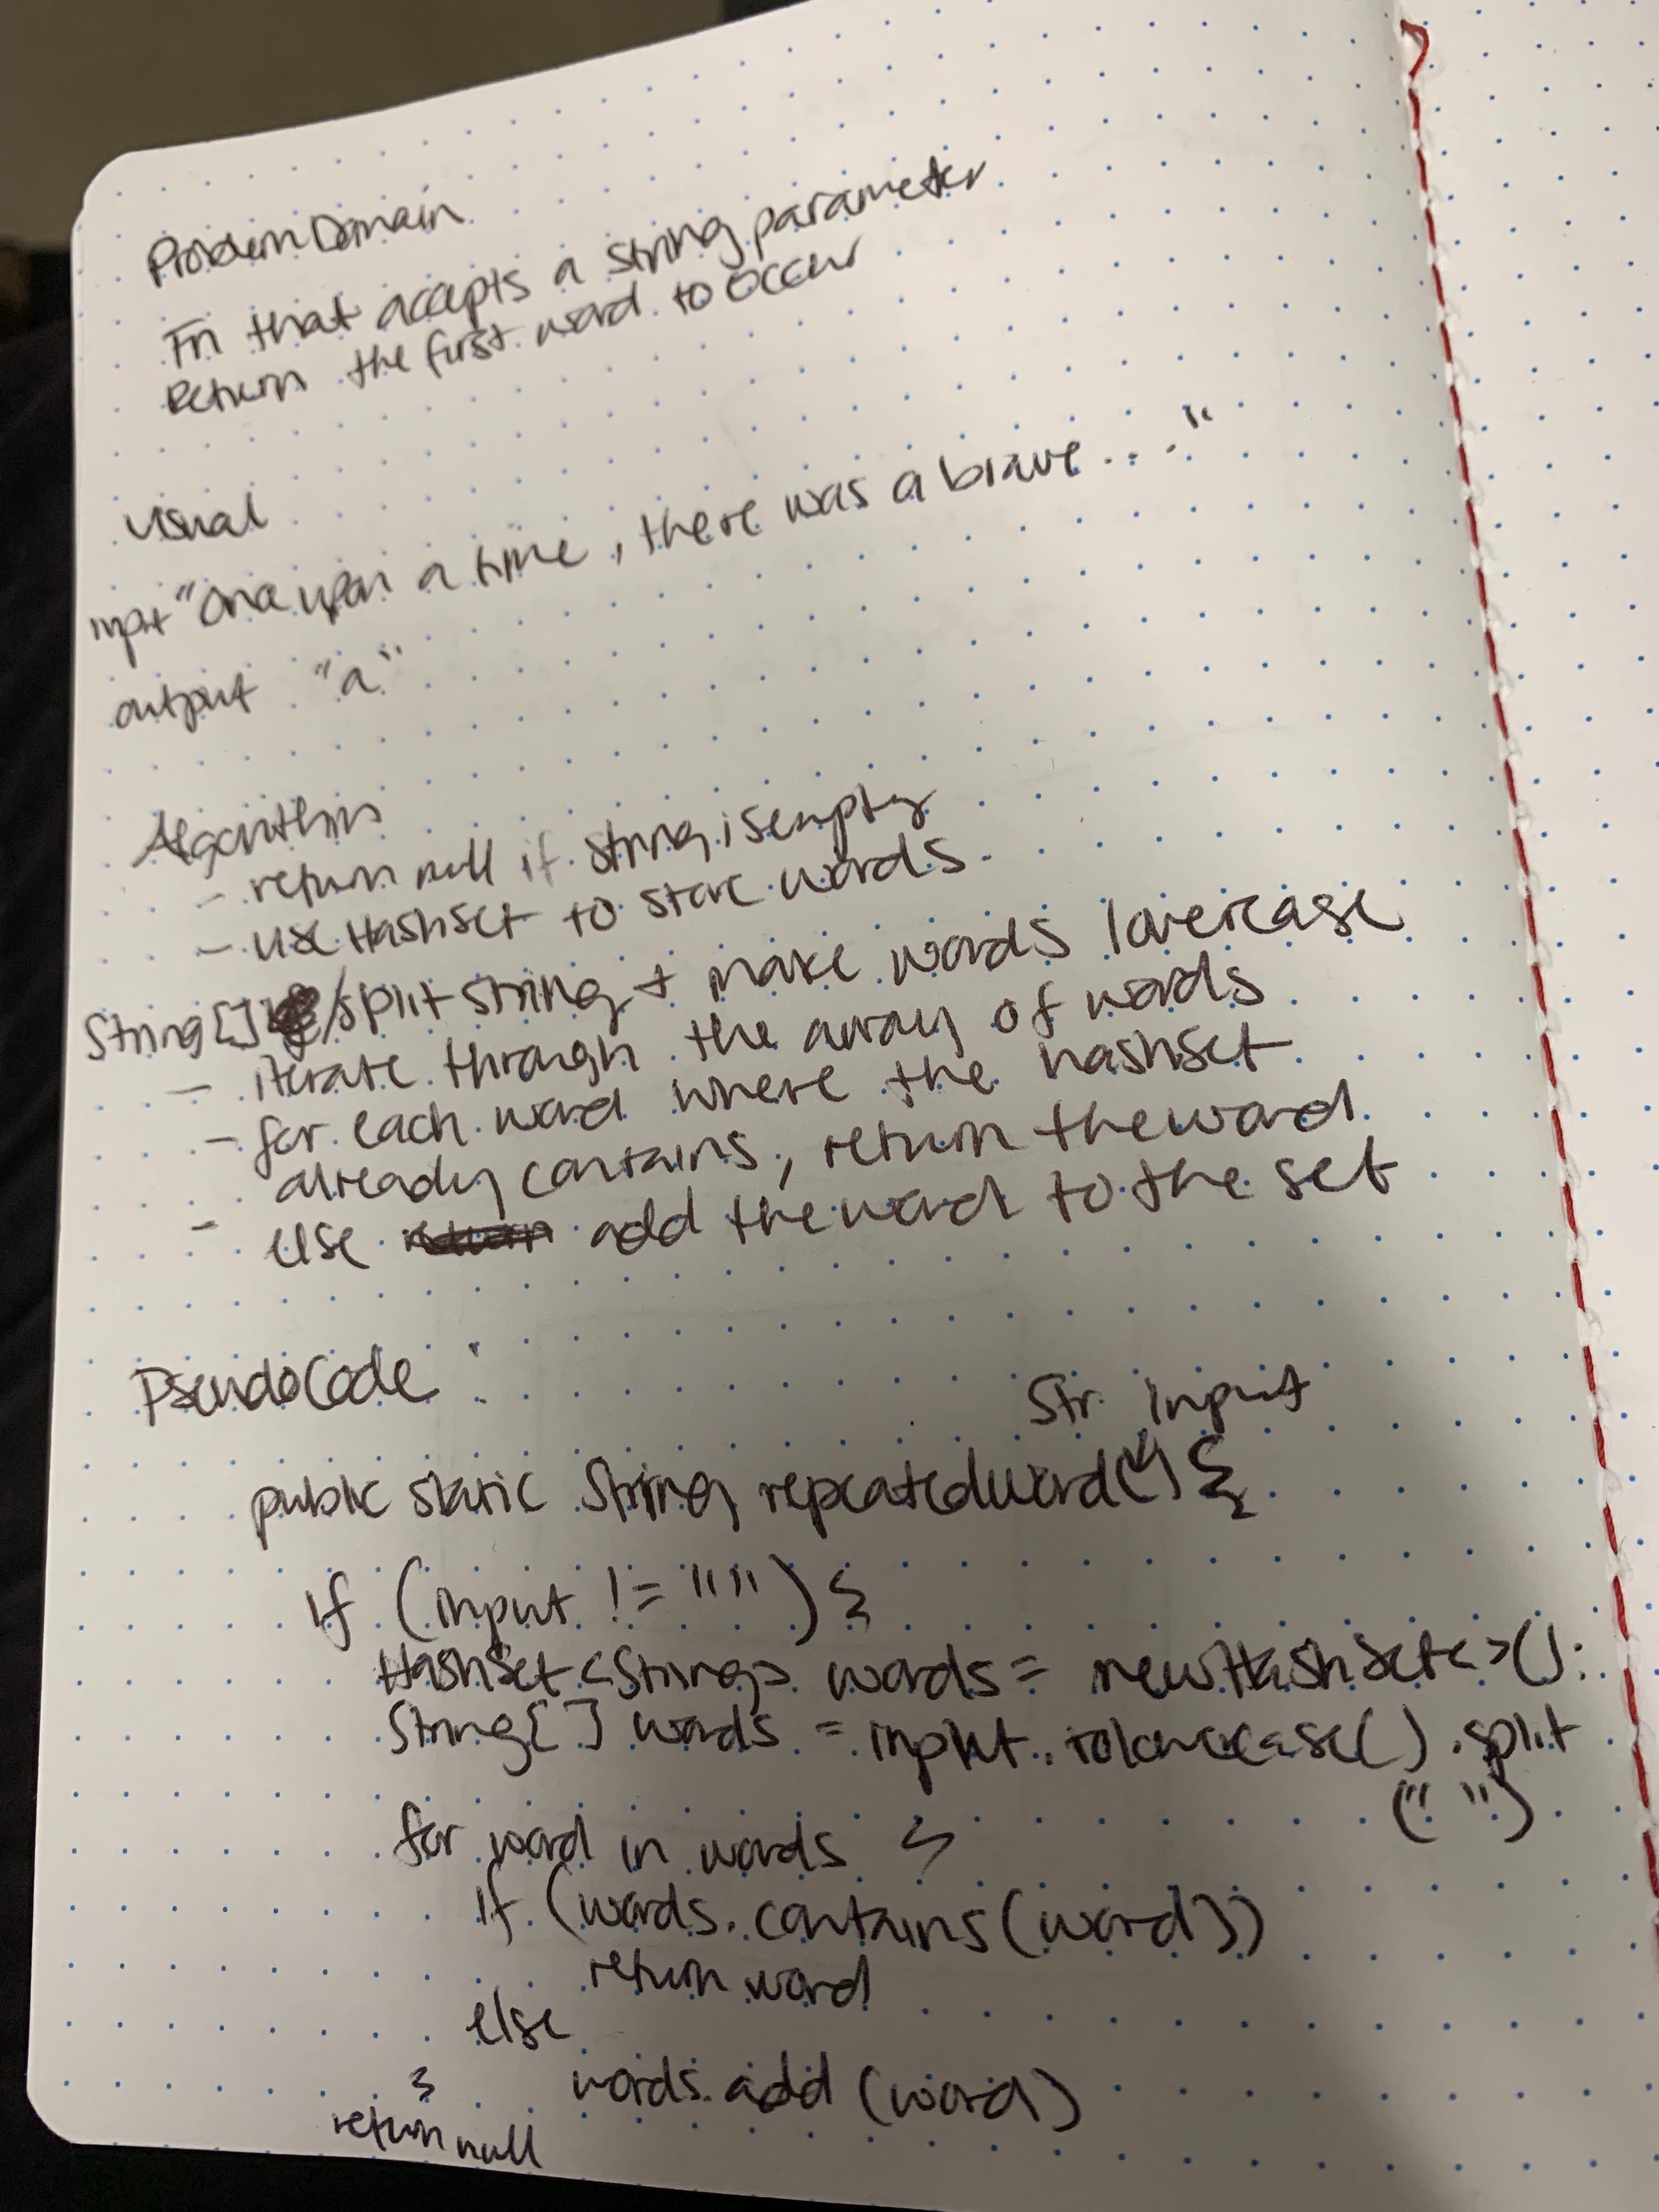 Problem Domain
Fn that accepts a string parameter
Return the first word to occur
Visual
input "Once upon a time, there was a brave..."
output "a"
Algorithm
- return null if string is empty
- use HashSet to store words
String[] / split string + make words lowercase
- iterate through the array of words
- for each word where the hashset
already contains, return the word
- else add the word to the set
PseudoCode
Str. input
public static String repeatedWord() {
if (input != "") {
HashSet<String> words = new HashSet<>();
String[] words = input.tolowercase().split
(" ")
for word in words {
if (words.contains(word))
return word
else
words.add(word)
}
return null